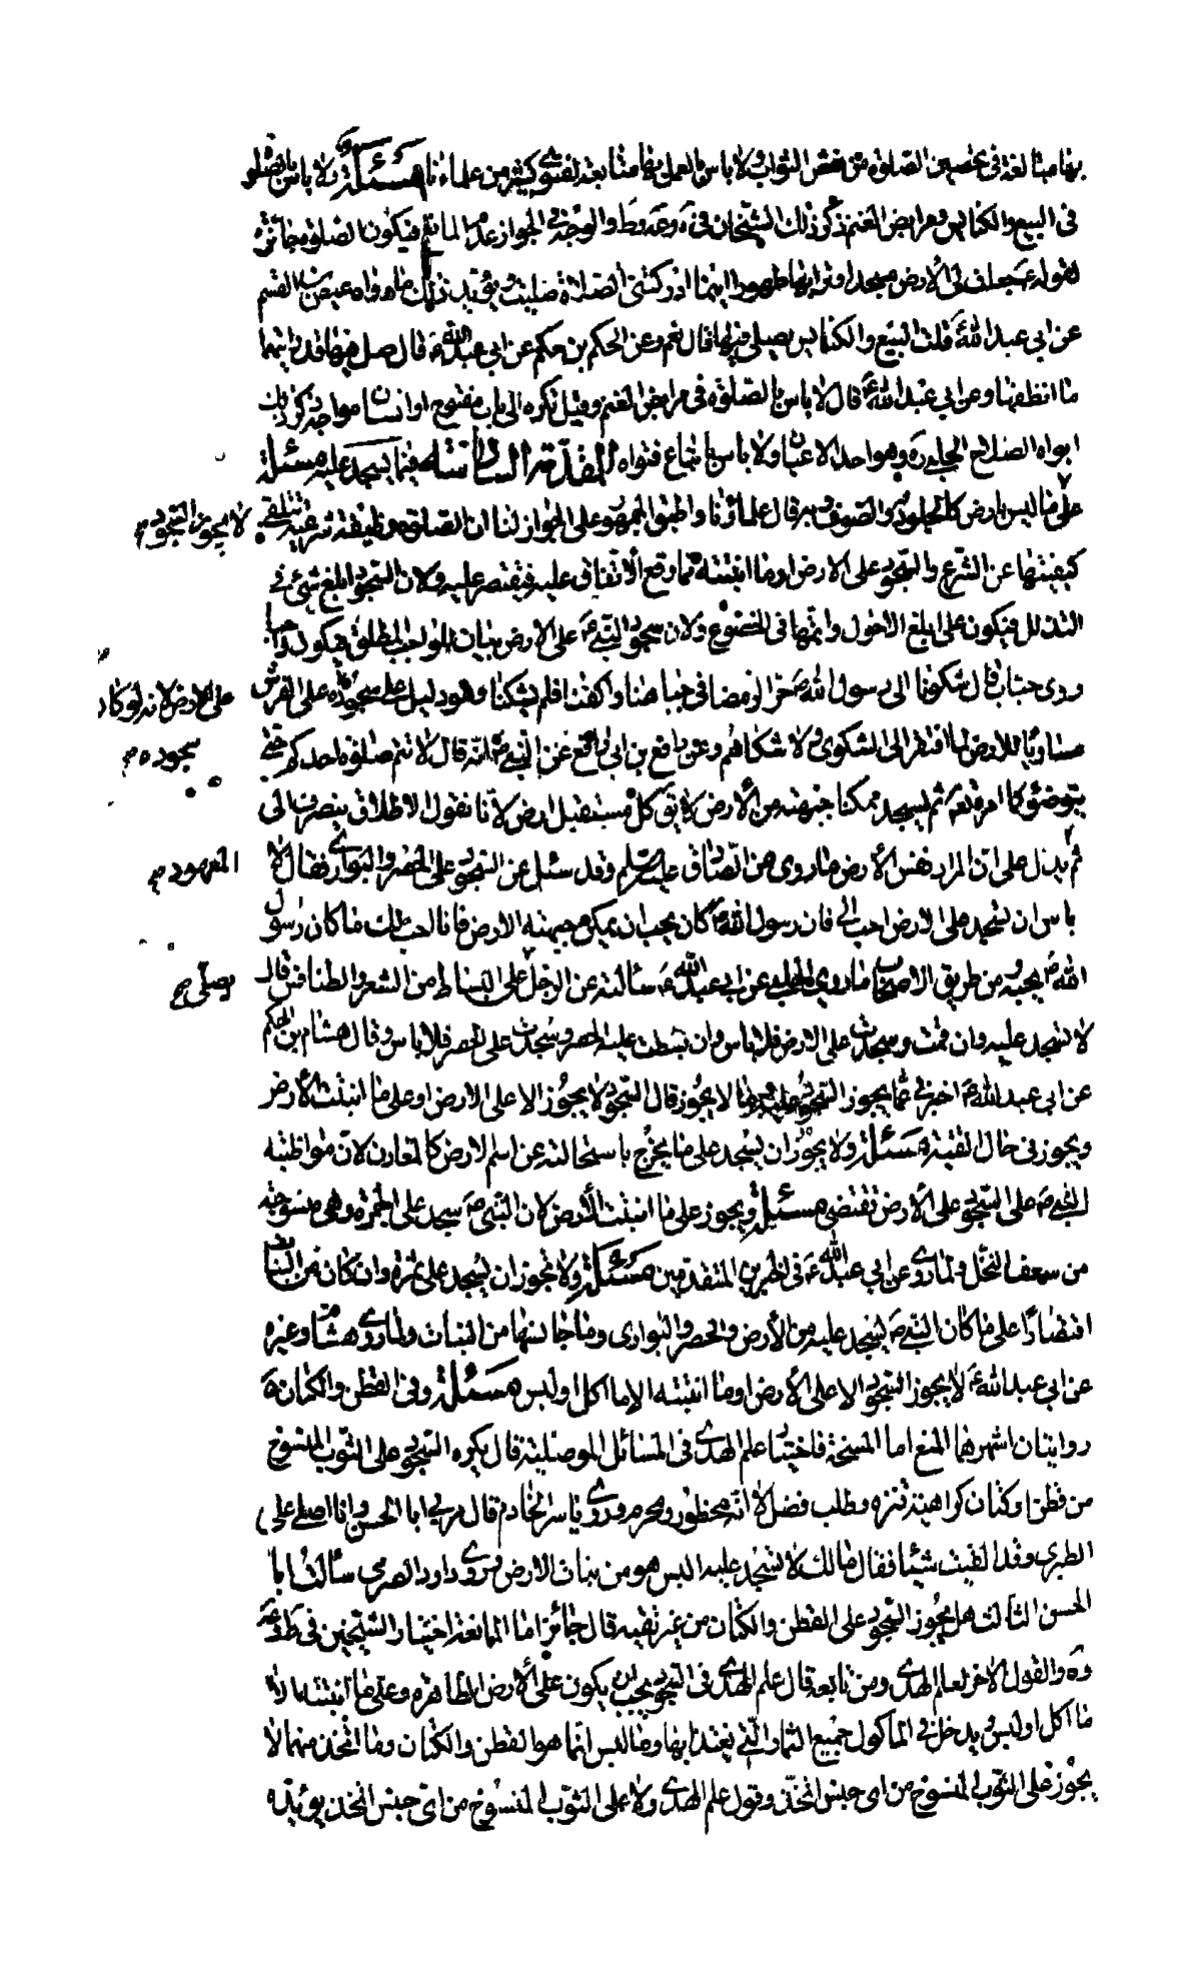 بها مبالغة فى تحصين الصلوة من نقص الثواب ولا باس بالعمل بها متابعة لفتوى كثير من علمائنا مسئلة ولا باس بالصلوة
فى البيع والكنايس ومرابض الغنم ذكر ذلك الشيخان فى ه وعه وط والوجه فى الجواز عدم المانع فيكون الصلوة جائزة
لقوله ع جعلت لى الأرض مسجدا وترابها طهورا اينما ادركتنى الصلاة صليت ويؤيد ذلك ما رواه عيص بن القسم
عن ابى عبد الله ع قلت البيع والكنايس يصلى فيها قال نعم وعن الحكم بن حكم عن ابى عبد الله ع قال صل فيها قد رايتها
ما انظفها وعن ابى عبد الله ع قال لا باس بالصلوة فى مرابض الغنم وقيل تكره الى باب مفتوح او انسان مواجه ذكر ذلك
ابو الصلاح الحلبى ره وهو احد الاعيان ولا باس باتباع فتواه المقدمة السادسة فيما يسجد عليه مسئلة
لا يجوز السجود
على ما ليس بارض كالجلود والصوف وبه قال علماؤنا واطبق الجمهور على الجواز لنا ان الصلوة وظيفة شرعية فتتلقى
كيفيتها عن الشرع والسجود على الارض او ما انبتته مما وقع الاتفاق عليه فيقتصر عليه ولان السجود ابلغ شئ فى
التذلل فيكون على ابلغ الاحوال واتمها فى الخضوع ولان سجود النبى ص على الارض بيان للواجب المطلق فيكون واجبا
روى خباب قال شكونا الى رسول الله ص حر الرمضا فى جباهنا واكفنا فلم يشكنا وهو دليل على سجوده على الفرش
على الارض لانه لو كان
سجوده
مساويا للارض لما افتقر الى الشكوى ولاشكاهم وعن رافع بن ابى رافع عن النبى ص انه قال لا تتم صلوة احدكم حتى
يتوضئ كما امره الله ثم يسجد ممكنا جبهته من الأرض لا يق كل مستقبل ارض لانا نقول الاطلاق ينصرف الى
المعهود
ثم يدل على ان المراد نفس الأرض ما روى عن الصادق عليه السلم وقد سئل عن السجود على الحصر والبوارى فقال لا
باس ان تسجد على الارض احب الى فان رسول الله ص كان يحب ان يمكن جبهته الارض فانا احب لك ما كان رسول
الله ص يحبه ومن طريق الاصحاب ما رواه الحلبى عن ابى عبد الله ع سألته عن الرجل على البساط من الشعر والطنافس قال
يصلى
لا تسجد عليه وان قمت وسجدت على الارض فلا باس وان بسطت عليه الحصر وسجدت على الحصر فلا باس وقال هشام بن الحكم
عن ابى عبد الله ع اخبرنى عما يجوز السجود عليه وما لا يجوز قال السجود لا يجوز الا على الارض او على ما انبتت الأرض
ويجوز فى حال التقية مسئلة ولا يجوز ان يسجد على ما يخرج باستحالته عن اسم الارض كالمعادن لان مواظبة
النبى ص على السجود على الأرض تقتضى مسئلة ويجوز على ما انبتت الأرض لان النبى ص سجد على الخمرة وهى منسوجة
من سعف النخل ولما روى عن ابى عبد الله ع فى الخبرين المتقدمين مسئلة ولا يجوز ان يسجد على ثمرة وان كان من النبات
اقتصارا على ما كان النبى ص يسجد عليه من الأرض والحصر والبوارى وما جانسها من النبات ولما روى هشام وغيره
عن ابى عبد الله ع لا يجوز السجود الا على الأرض او ما انبتته الا ما اكل او لبس مسئلة وفى القطن والكتان
روايتان اشهرهما المنع اما المبيحة فاختيار علم الهدى فى المسائل الموصلية قال يكره السجود على الثوب المنسوج
من قطن او كتان كراهية تنزه وطلب فضل لا انه محظور ومحرم وروى ياسر الخادم قال مر بى ابا الحسن وانا اصلى على
الطبرى وقد القيت شيئا فقال مالك لا تسجد عليه اليس هو من نبات الارض وروى داود الصرمى سألت ابا
الحسن الثالث هل يجوز السجود على القطن والكتان من غير تقيه قال جائز اما المانعة اختيار الشيخين فى ط وعه
وه والقول الاخر لعلم الهدى ومن تابعه قال علم الهدى فى السجود يجب ان يكون على الأرض الطاهرة وعلى ما انبتته الا
ما اكل او لبس ويدخل فى الماكول جميع الثمار التى يغتذا بها وما لبس انما هو القطن والكتان وما اتخذ منهما لا
يجوز على الثوب المنسوج من اى جنس اتخذ وقول علم الهدى ولا على الثوب المنسوج من اى جنس اتخذ يؤيده